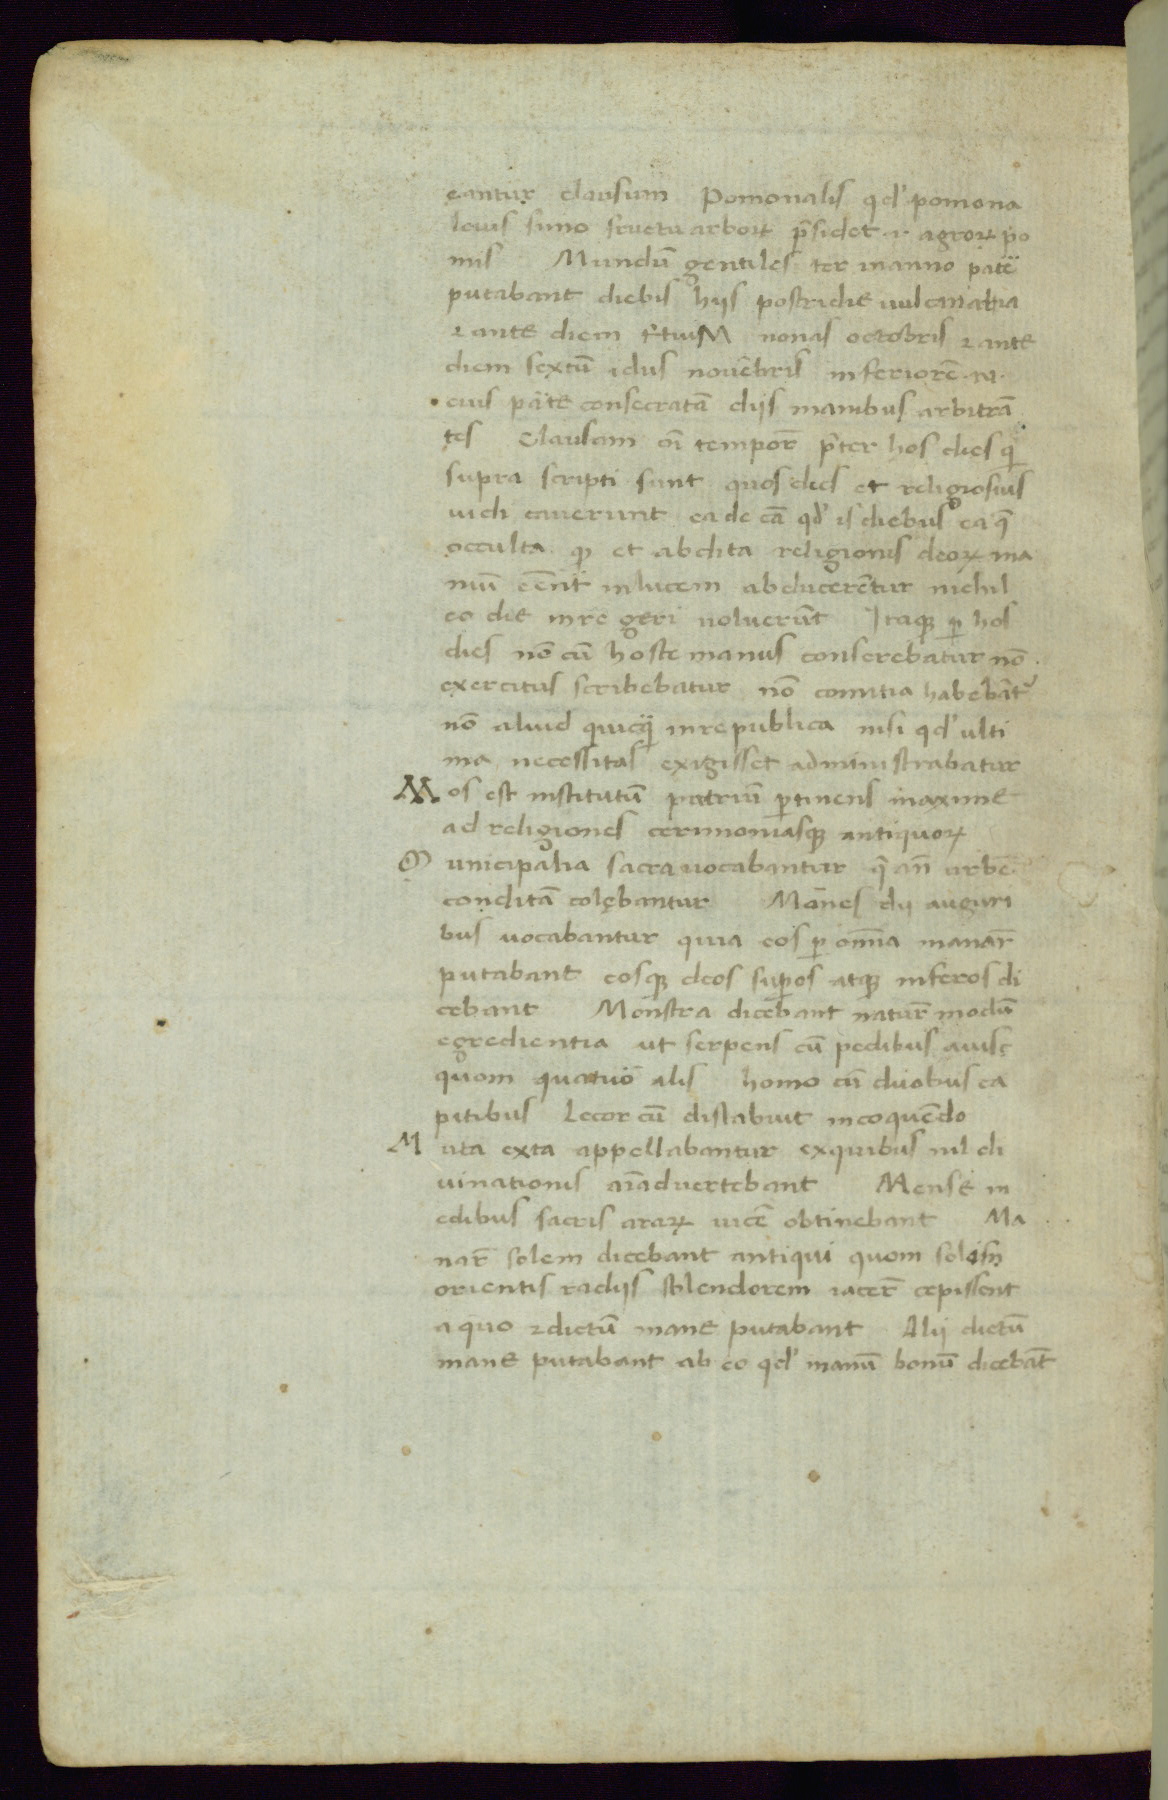 cantur clausum Pomonalis qd' pomona
levis sūmo fructu arborꝝ p̄sidet ⁊ agrorꝝ po
mis Mundū gentiles ter in anno patē
putabant diebus hijs postridie uulcanalia
⁊ ante diem tertium nonas octobris ⁊ ante
diem sextū idus novēbris inferiorē
eius partē consecratā dijs manibus arbitrā
tes Clausam oī tempor̄ p̄ter hos dies qui
supra scripti sunt quos dies et religiosius
uidi cauerunt ea de cā qd' is diebus ea q̄
occulta et abdita religionis deorꝝ ma
niū eēnt in lucem abducerētur nichil
eo die in re geri uoluerūt Itaqꝫ ꝑ hos
dies nō cū hoste manus conserebatur nō
exercitus scribebatur nō comitia habebāt'
nō aliud quicqꝫ in republica nisi qd' ulti
ma necessitas exigisset administrabatur
Mos est institutū patriū ꝑtinens maxime
ad religiones cerimoniasqꝫ antiquorꝝ
Municipalia sacra uocabantur q̄ an̄ urbē
conditā colebantur Manes dij auguri
bus uocabantur quia eos ꝑ omīa manar̄
putabant eosqꝫ deos suꝑos atqꝫ inferos di
cebant Monstra dicebant natur̄ modū
egredientia ut serpens cū pedibus auis
quom quatuor alis homo cū duobus ca
pitibus Iecor cū distabuit in coquēdo
Muta exta appellabantur ex quibus nil di
uinationis aīaduertebant Mense in
edibus sacris ararꝝ uicē obtinebant Ma
nar̄ solem dicebant antiqui quom solis
orientis radijs splendorem iacer̄ cepissent
a quo ⁊ dictū mane putabant Alij dictū
mane putabant ab eo qd' manū bonū dicebāt